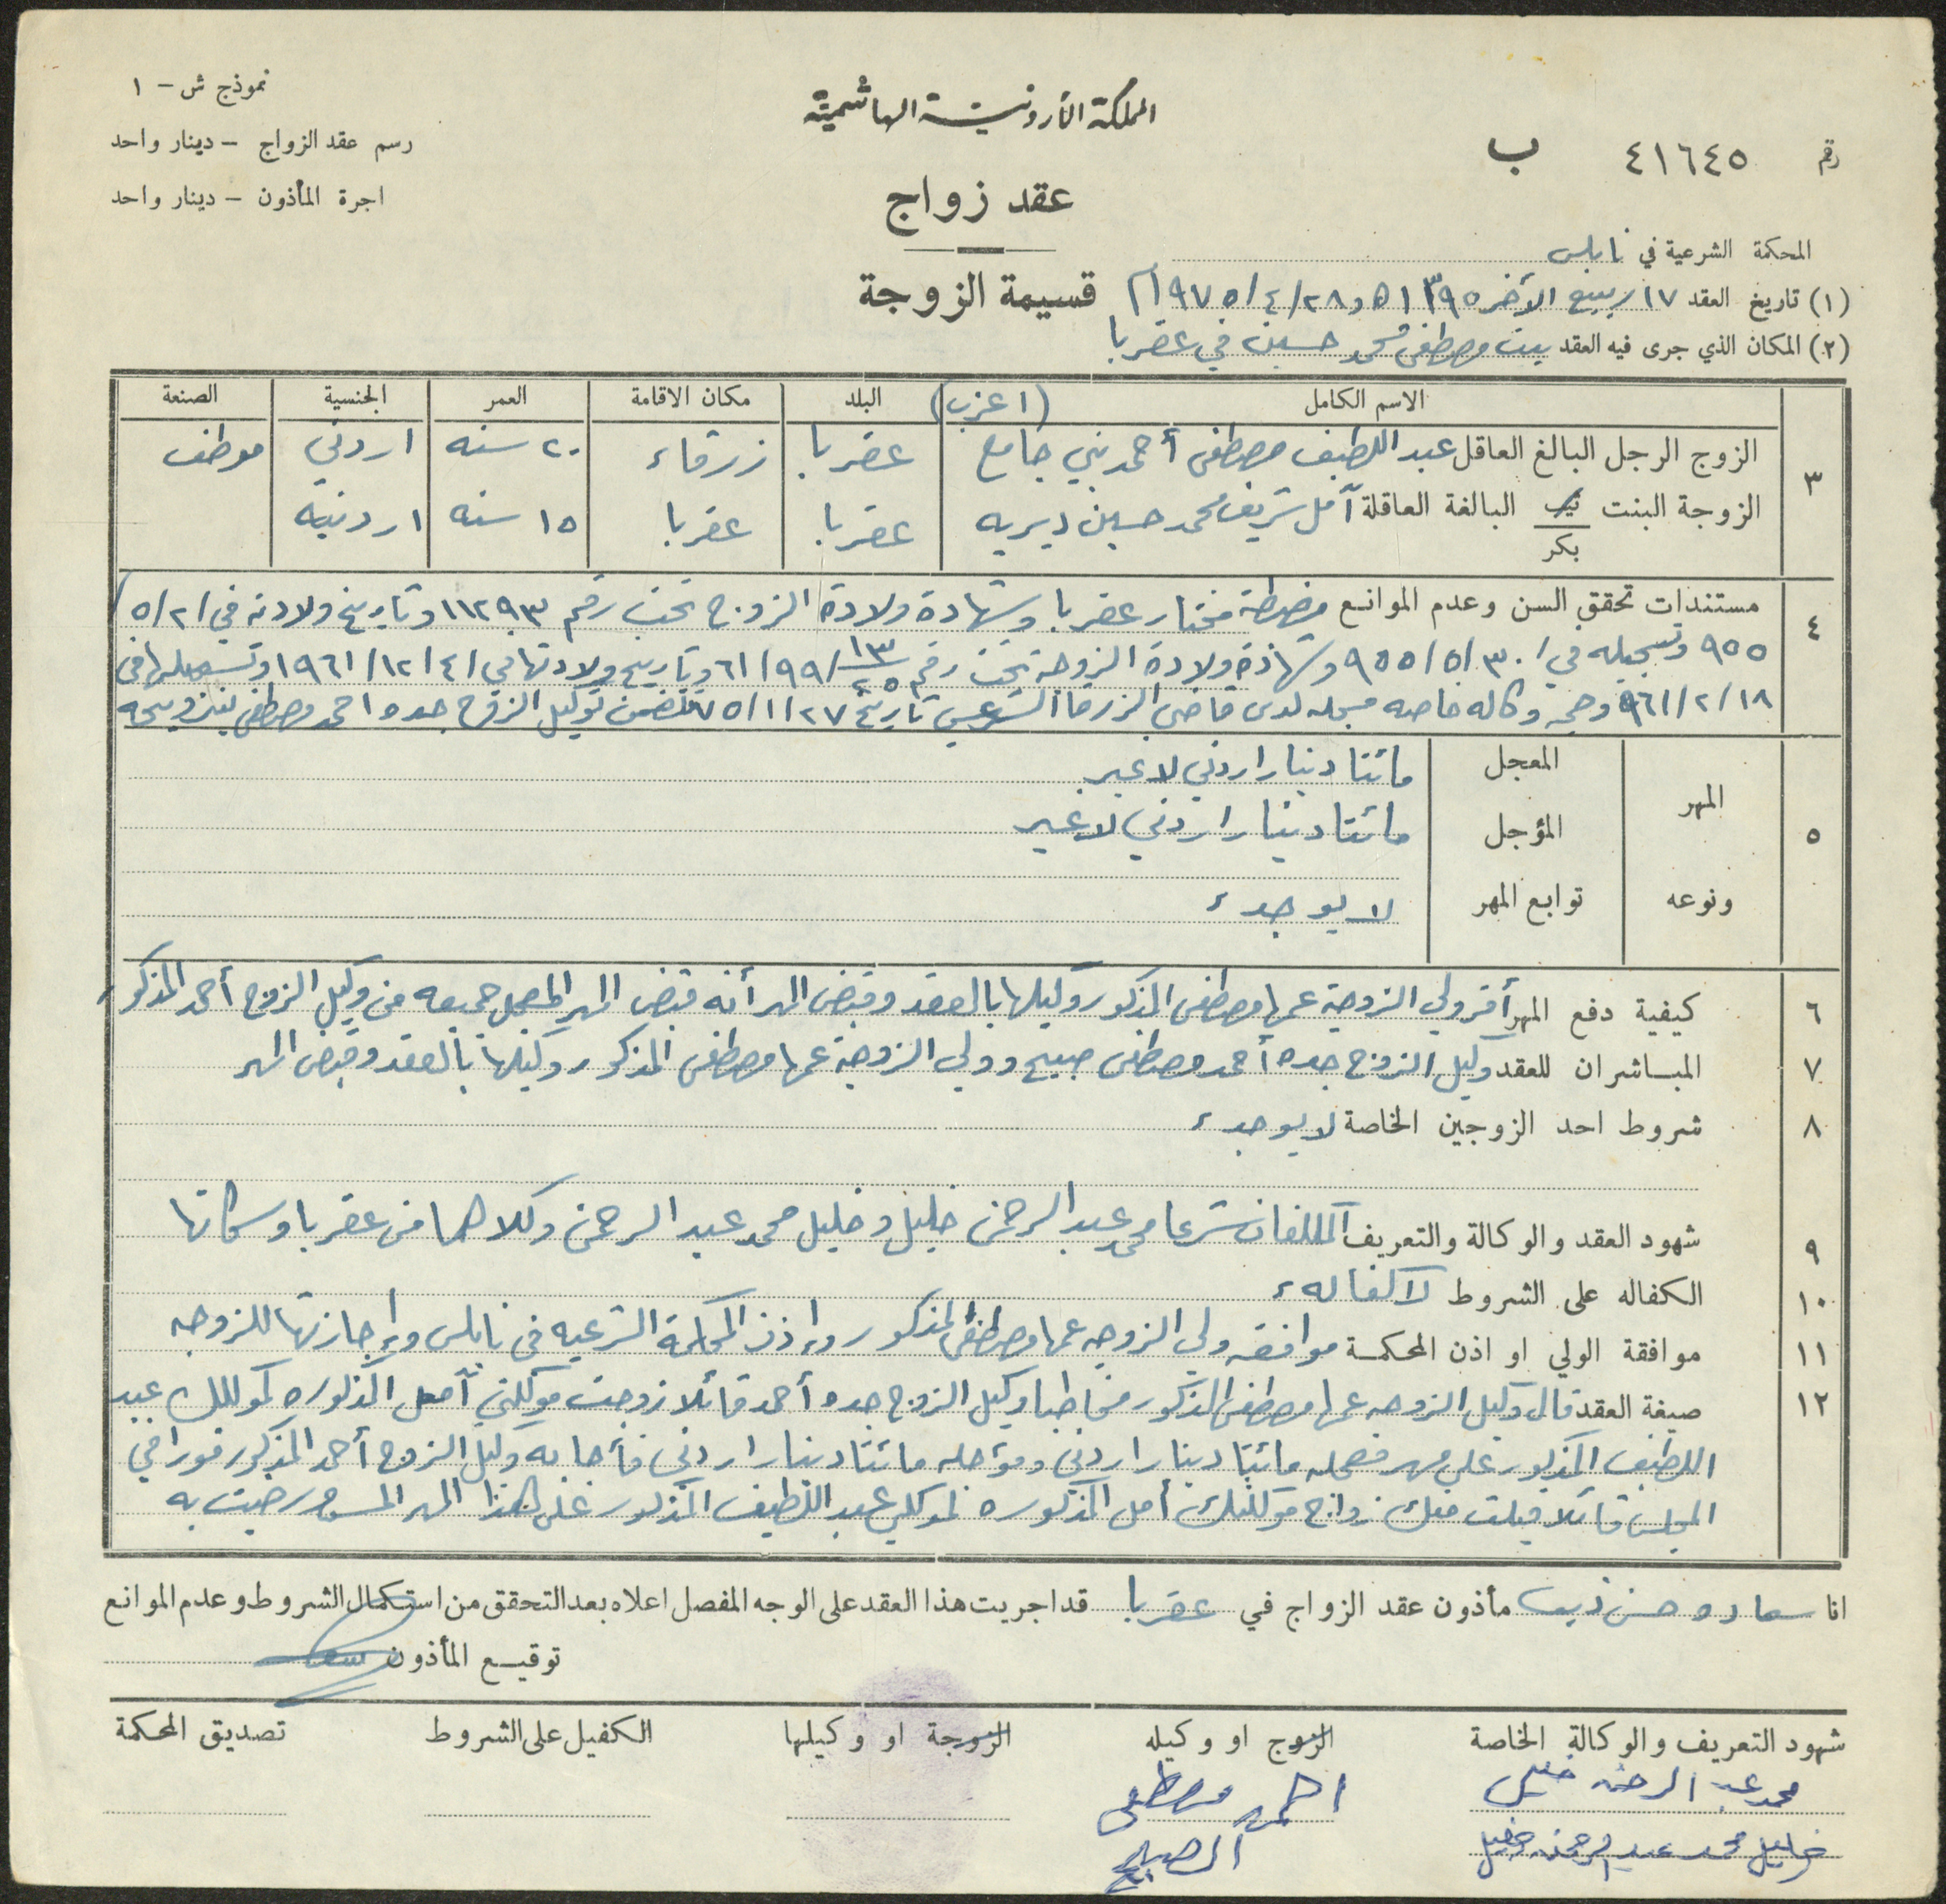 نموذج ش - ١
رسم عقد الزواج - دينار واحد
اجرة المأذون - دينار واحد
المملكة الأردنية الهاشمية
عقد زواج
قسيمة الزوجة
رقم ٤١٦٤٥ ب
المحكمة الشرعية في نابلس
(١) تاريخ العقد ١٧ ربيع الآخر ١٣٩٥ هـ و ٢٨/٤/١٩٧٥ م
(٢) المكان الذي جرى فيه العقد بيت مصطفى محمد حسين في عقربا
٣ الاسم الكامل (اعزب) البلد مكان الاقامة العمر الجنسية الصنعة
الزوج الرجل البالغ العاقل عبد اللطيف مصطفى أحمد بني جامع عقربا زرقاء ٢٠ سنه اردني موظف
الزوجة البنت ثيب بكر البالغة العاقلة آمل شريف محمد حسين ديريه عقربا عقربا ١٥ سنه اردنيه
٤ مستندات تحقق السن وعدم الموانع مضبطة مختار عقربا وشهادة ولادة الزوج تحت رقم ١١٢٩٣ وتاريخ ولادته في ٥/٢١/
٩٥٥ وتسجيله في ٣٠/٥/٩٥٥ وشهادة ولادة الزوجة تحت رقم ٦١/٩٩/ وتاريخ ولادتها في ٤/١٢/١٩٦١ وتسجيلها في
١٨/٢/٩٦١ وحجه وكاله خاصه مسجله لدى قاضي الزرقا الشرعي تاريخ ٢٧/١/٧٥ تتضمن توكيل الزوج جده احمد مصطفى بتزويجه
٥ المهر ونوعه
المعجل مائتا دينار اردني لا غير
المؤجل مائتا دينار اردني لا غير
توابع المهر لا يوجد
٦ كيفية دفع المهر أقر ولي الزوجة عمها مصطفى المذكور وكيلها بالعقد وقبض المهر أنه قبض المهر المعجل جميعه من وكيل الزوج أحمد المذكور
٧ المباشران للعقد وكيل الزوج جده أحمد مصطفى صبيح وولي الزوجة عمها مصطفى المذكور وكيلها بالعقد وقبض المهر
٨ شروط احد الزوجين الخاصة لا يوجد
٩ شهود العقد والوكالة والتعريف المكلفان شرعا محمد عبد الرحمن خليل وخليل محمد عبد الرحمن وكلاهما من عقربا وسكانها
١٠ الكفاله على الشروط لا كفاله
١١ موافقة الولي او اذن المحكمة موافقه ولي الزوجه عمها مصطفى المذكور وإذن المحكمة الشرعيه في نابلس وإجازتها للزوجه
١٢ صيغة العقد قال وكيل الزوجه عمها مصطفى المذكور مخاطبا وكيل الزوج جده أحمد قائلا زوجت موكلتي آمل المذكوره لموكلك عبد
اللطيف المذكور على مهر معجله مائتا دينار اردني ومؤجله مائتا دينار اردني فأجابه وكيل الزوج أحمد المذكور فورا في
المجلس قائلا قبلت منك زواج موكلتك أمل المذكوره لموكلي عبد اللطيف المذكور على هذا المهر المسمى ورضيت به
انا سعاده حسن ذيب مأذون عقد الزواج في عقربا قد اجريت هذا العقد على الوجه المفصل اعلاه بعد التحقق من استكمال الشروط وعدم الموانع
توقيع المأذون
شهود التعريف والوكالة الخاصة الزوج او وكيله الزوجة او وكيلها الكفيل على الشروط تصديق المحكمة
محمد عبد الرحمن خليل احمد مصطفى
خليل محمد عبد الرحمن خليل الصبيح